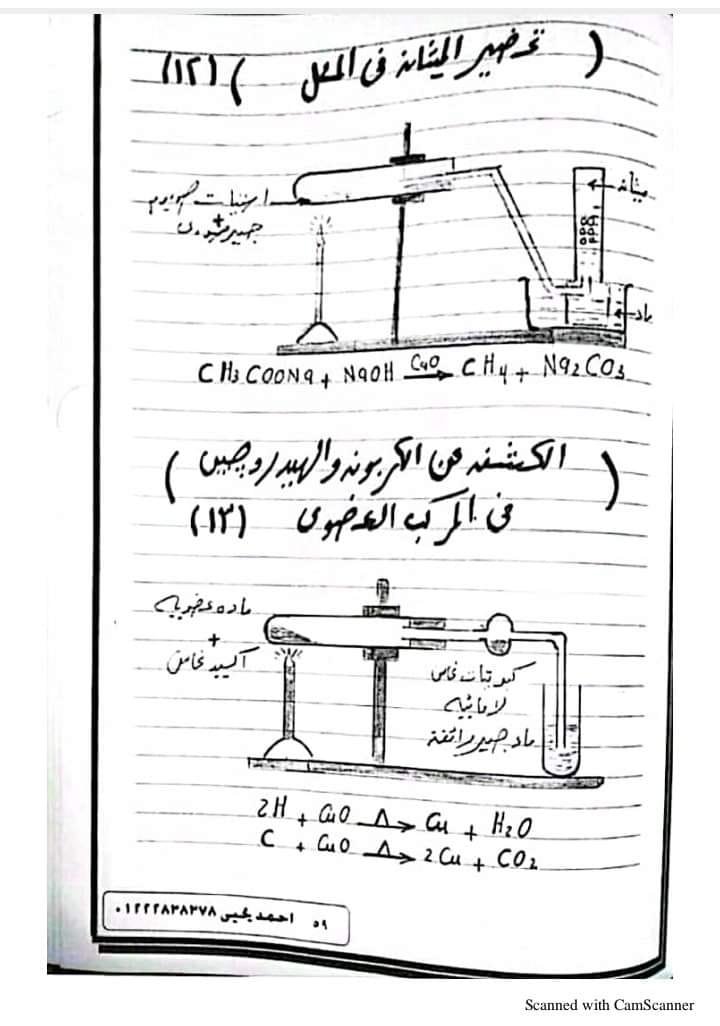 ( تحضير الميثان فى المعمل ) (١٢)
ميثان
اسيتات صوديوم
+
جير صودى
ماء
CH3COONa + NaOH CaO CH4 + Na2CO3
( الكشف عن الكربون والهيدروجين
فى المركب العضوى ) (١٣)
ماده عضويه
+
اكسيد نحاس
كبريتات نحاس
لا مائيه
ماء جير رائقة
2H + CuO Δ Cu + H2O
C + CuO Δ 2Cu + CO2
٥٩ احمد يحيى ٠١٢٢٢٨٣٨٣٧٨
Scanned with CamScanner